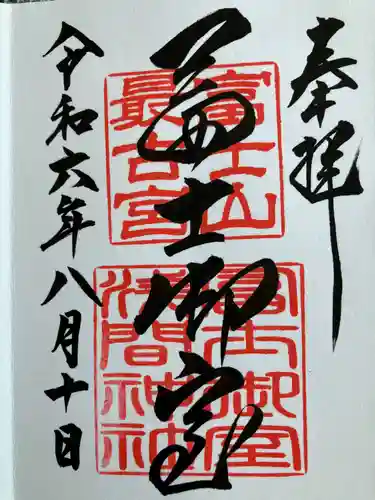 奉拝
富士御室
富士山
最古宮
富士御室
浅間神社
令和六年八月十日